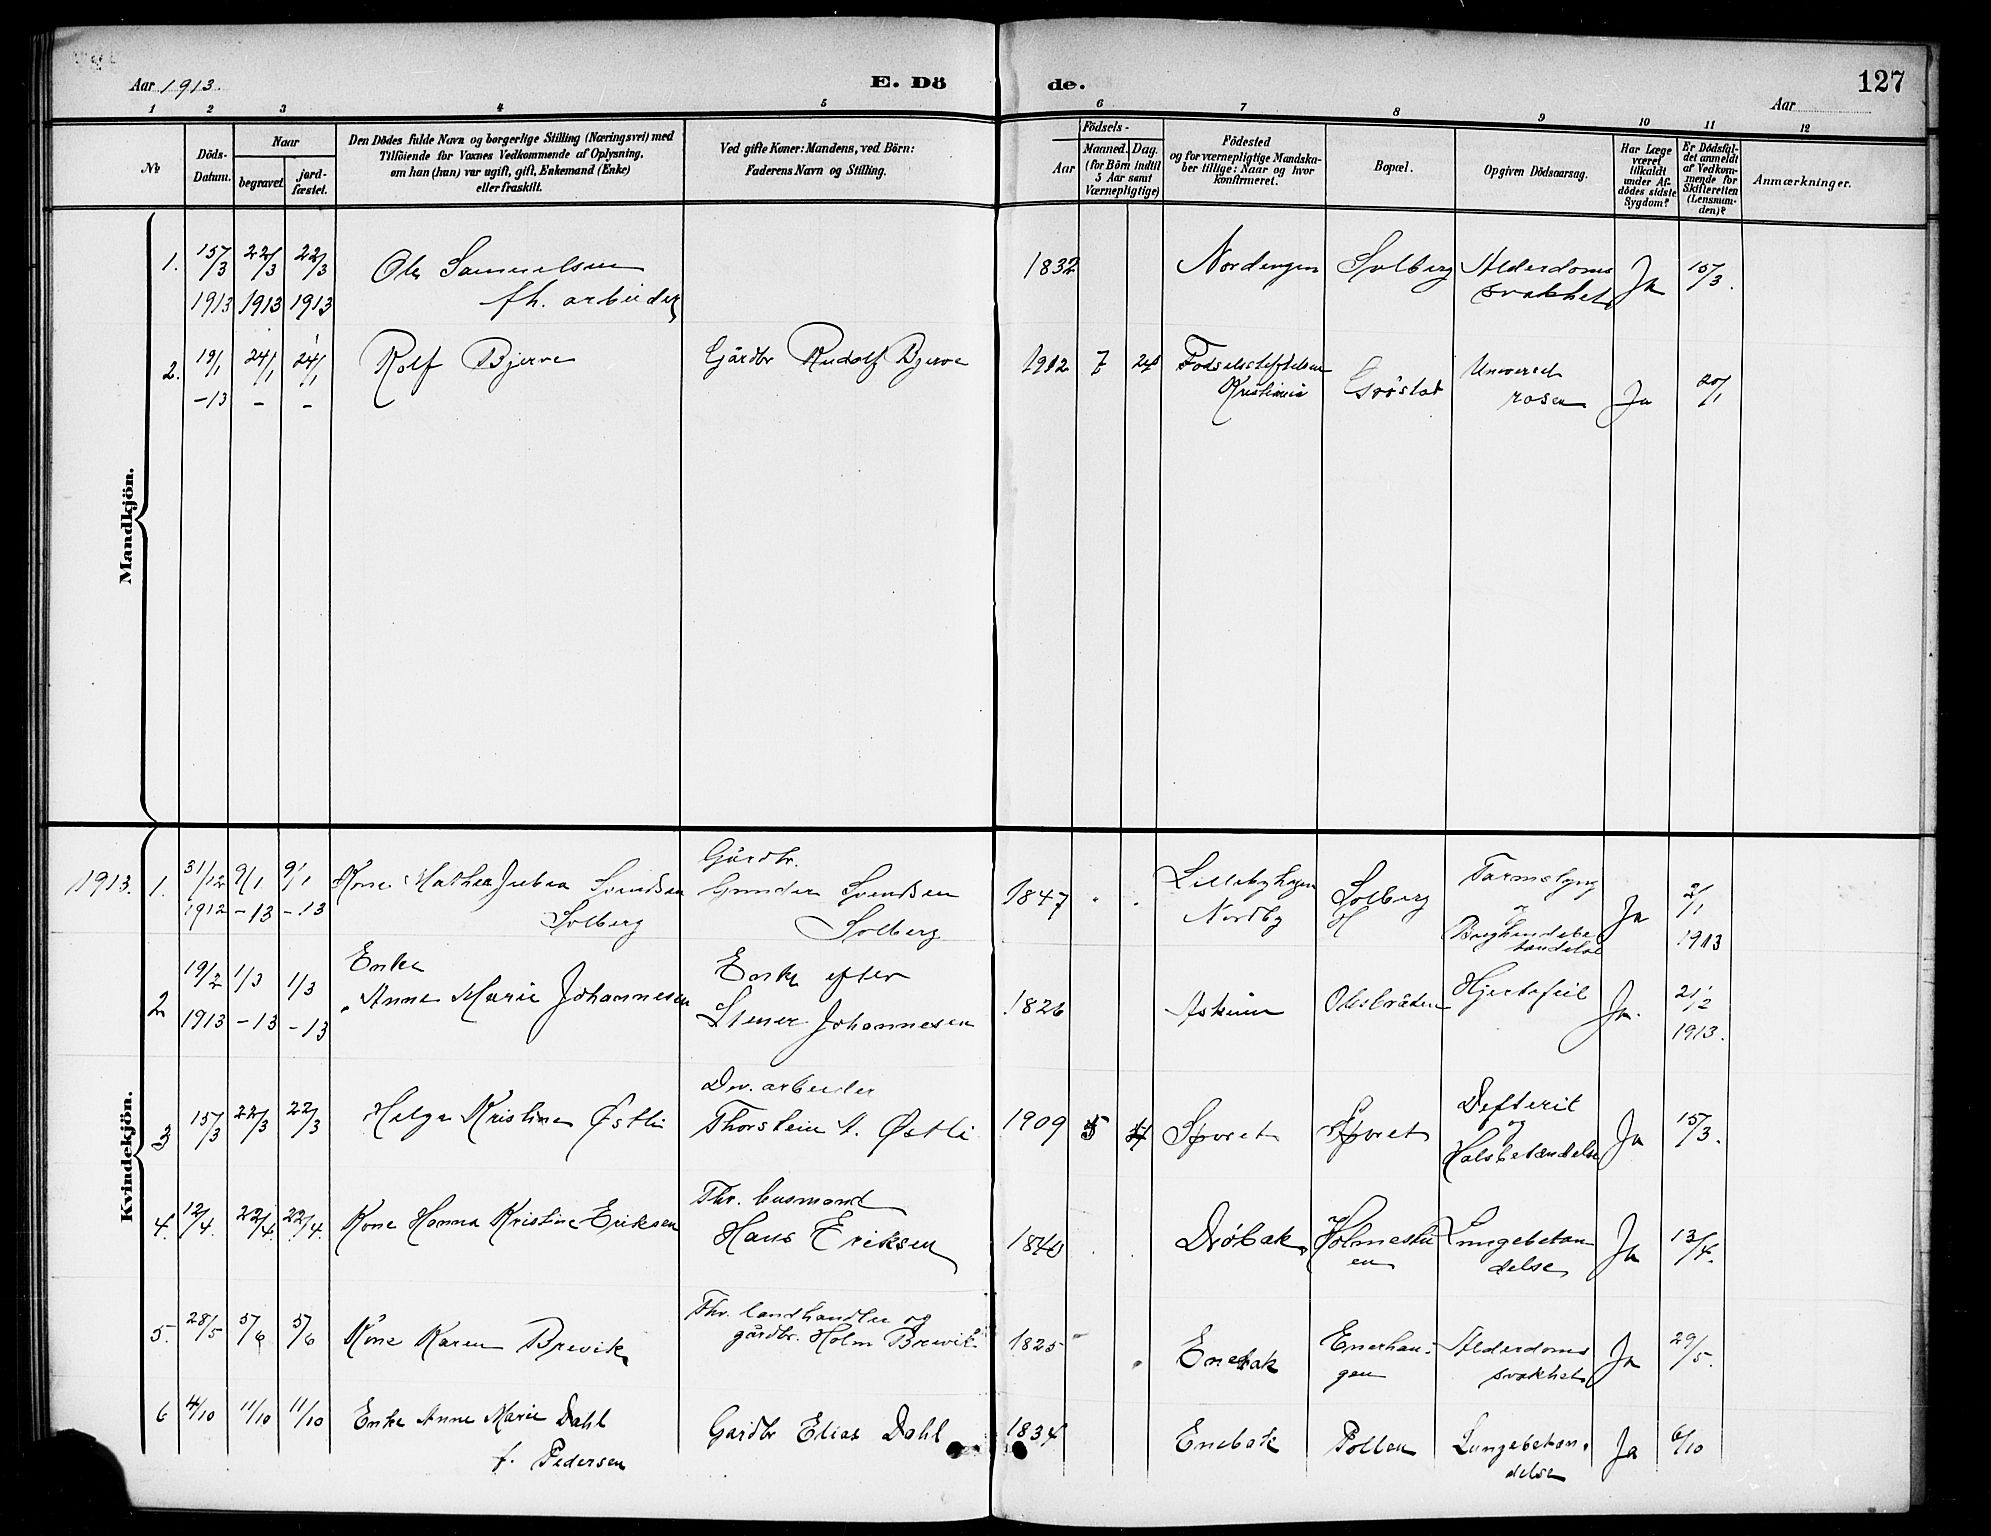 Aar 1913.
E. Dö
de.
127
Aar
1 2 3 4 5 6 7 8 9 10 11 12
№
Döds-
Datum.
Naar
begravet.
jord-
fæstet.
Den Dödes fulde Navn og borgerlige Stilling (Næringsvei) med
Tilföiende for Voxnes Vedkommende af Oplysning,
om han (hun) var ugift, gift, Enkemand (Enke)
eller fraskilt.
Ved gifte Koner: Mandens, ved Börn:
Faderens Navn og Stilling.
Födsels-
Aar
Maaned. Dag.
(for Börn indtil
5 Aar samt
Værnepligtige)
Födested
og for værnepligtige Mandska-
ber tillige: Naar og hvor
konfirmeret.
Bopæl.
Opgiven Dödsaarsag.
Har Læge
været
tilkaldt
under Af-
dödes sidste
Sygdom?
Er Dödsfal-
det anmeldt
af Vedkom-
mende for
Skifteretten
(Lensman-
den)?
Anmærkninger.
Mandkjön.
1. 15/3 22/3 22/3 Ole Samuelsen 1832 Nordengen Solberg Alderdoms Ja 15/3.
1913 1913 1913 fh. arbeider svakhet
2. 19/1 24/1 24/1 Rolf Bjerve Gårdbr Rudolf Bjerve 1912 7 24 Fødselsstiftelsen
Kristiania Grøstad rosen Ja 20/1
-13 - -
Kvindekjön.
1913. 1. 31/12 9/1 9/1 Kone Svendsen
Gårdbr.
Gunder Svendsen 1847 Lillebyhagen Solberg Ja 2/1
1912 -13 -13 Solberg Solberg Nordby
og
1913
2 19/2 1/3 1/3 Enke
Anne Marie Johannesen Enke efter
1913 -13 -13 Stener Johannesen 1826 Askim Olsbråten Hjertefeil Ja. 21/2
1913.
3 15/3 22/3 22/3 Helga Kristine Østli Dw. arbeider
Thorstein A. Østli 1909 5 Sporet Sporet Defterit
og
Halsbetændelse Ja 15/3.
4. 12/4. 22/4. 22/4. Kone Hanna Kristine Eriksen Fhv. husmand
Hans Eriksen 1840 Drøbak Holmestu
en Lungebetæn
delse Ja 13/4.
5. 28/5 5/6 5/6 Kone Karen Brevik Fhv. landhandler og
gårdbr. Holm Brevik 1825 Enebak Enerhau-
gen Alderdoms
svakhet Ja 29/5.
6 4/10 11/10 11/10 Enke Anne Marie Dahl Gårdbr Elias Dahl 1834 Enebak Pollen Lungebetæn-
delse Ja 6/10
f. Pedersen